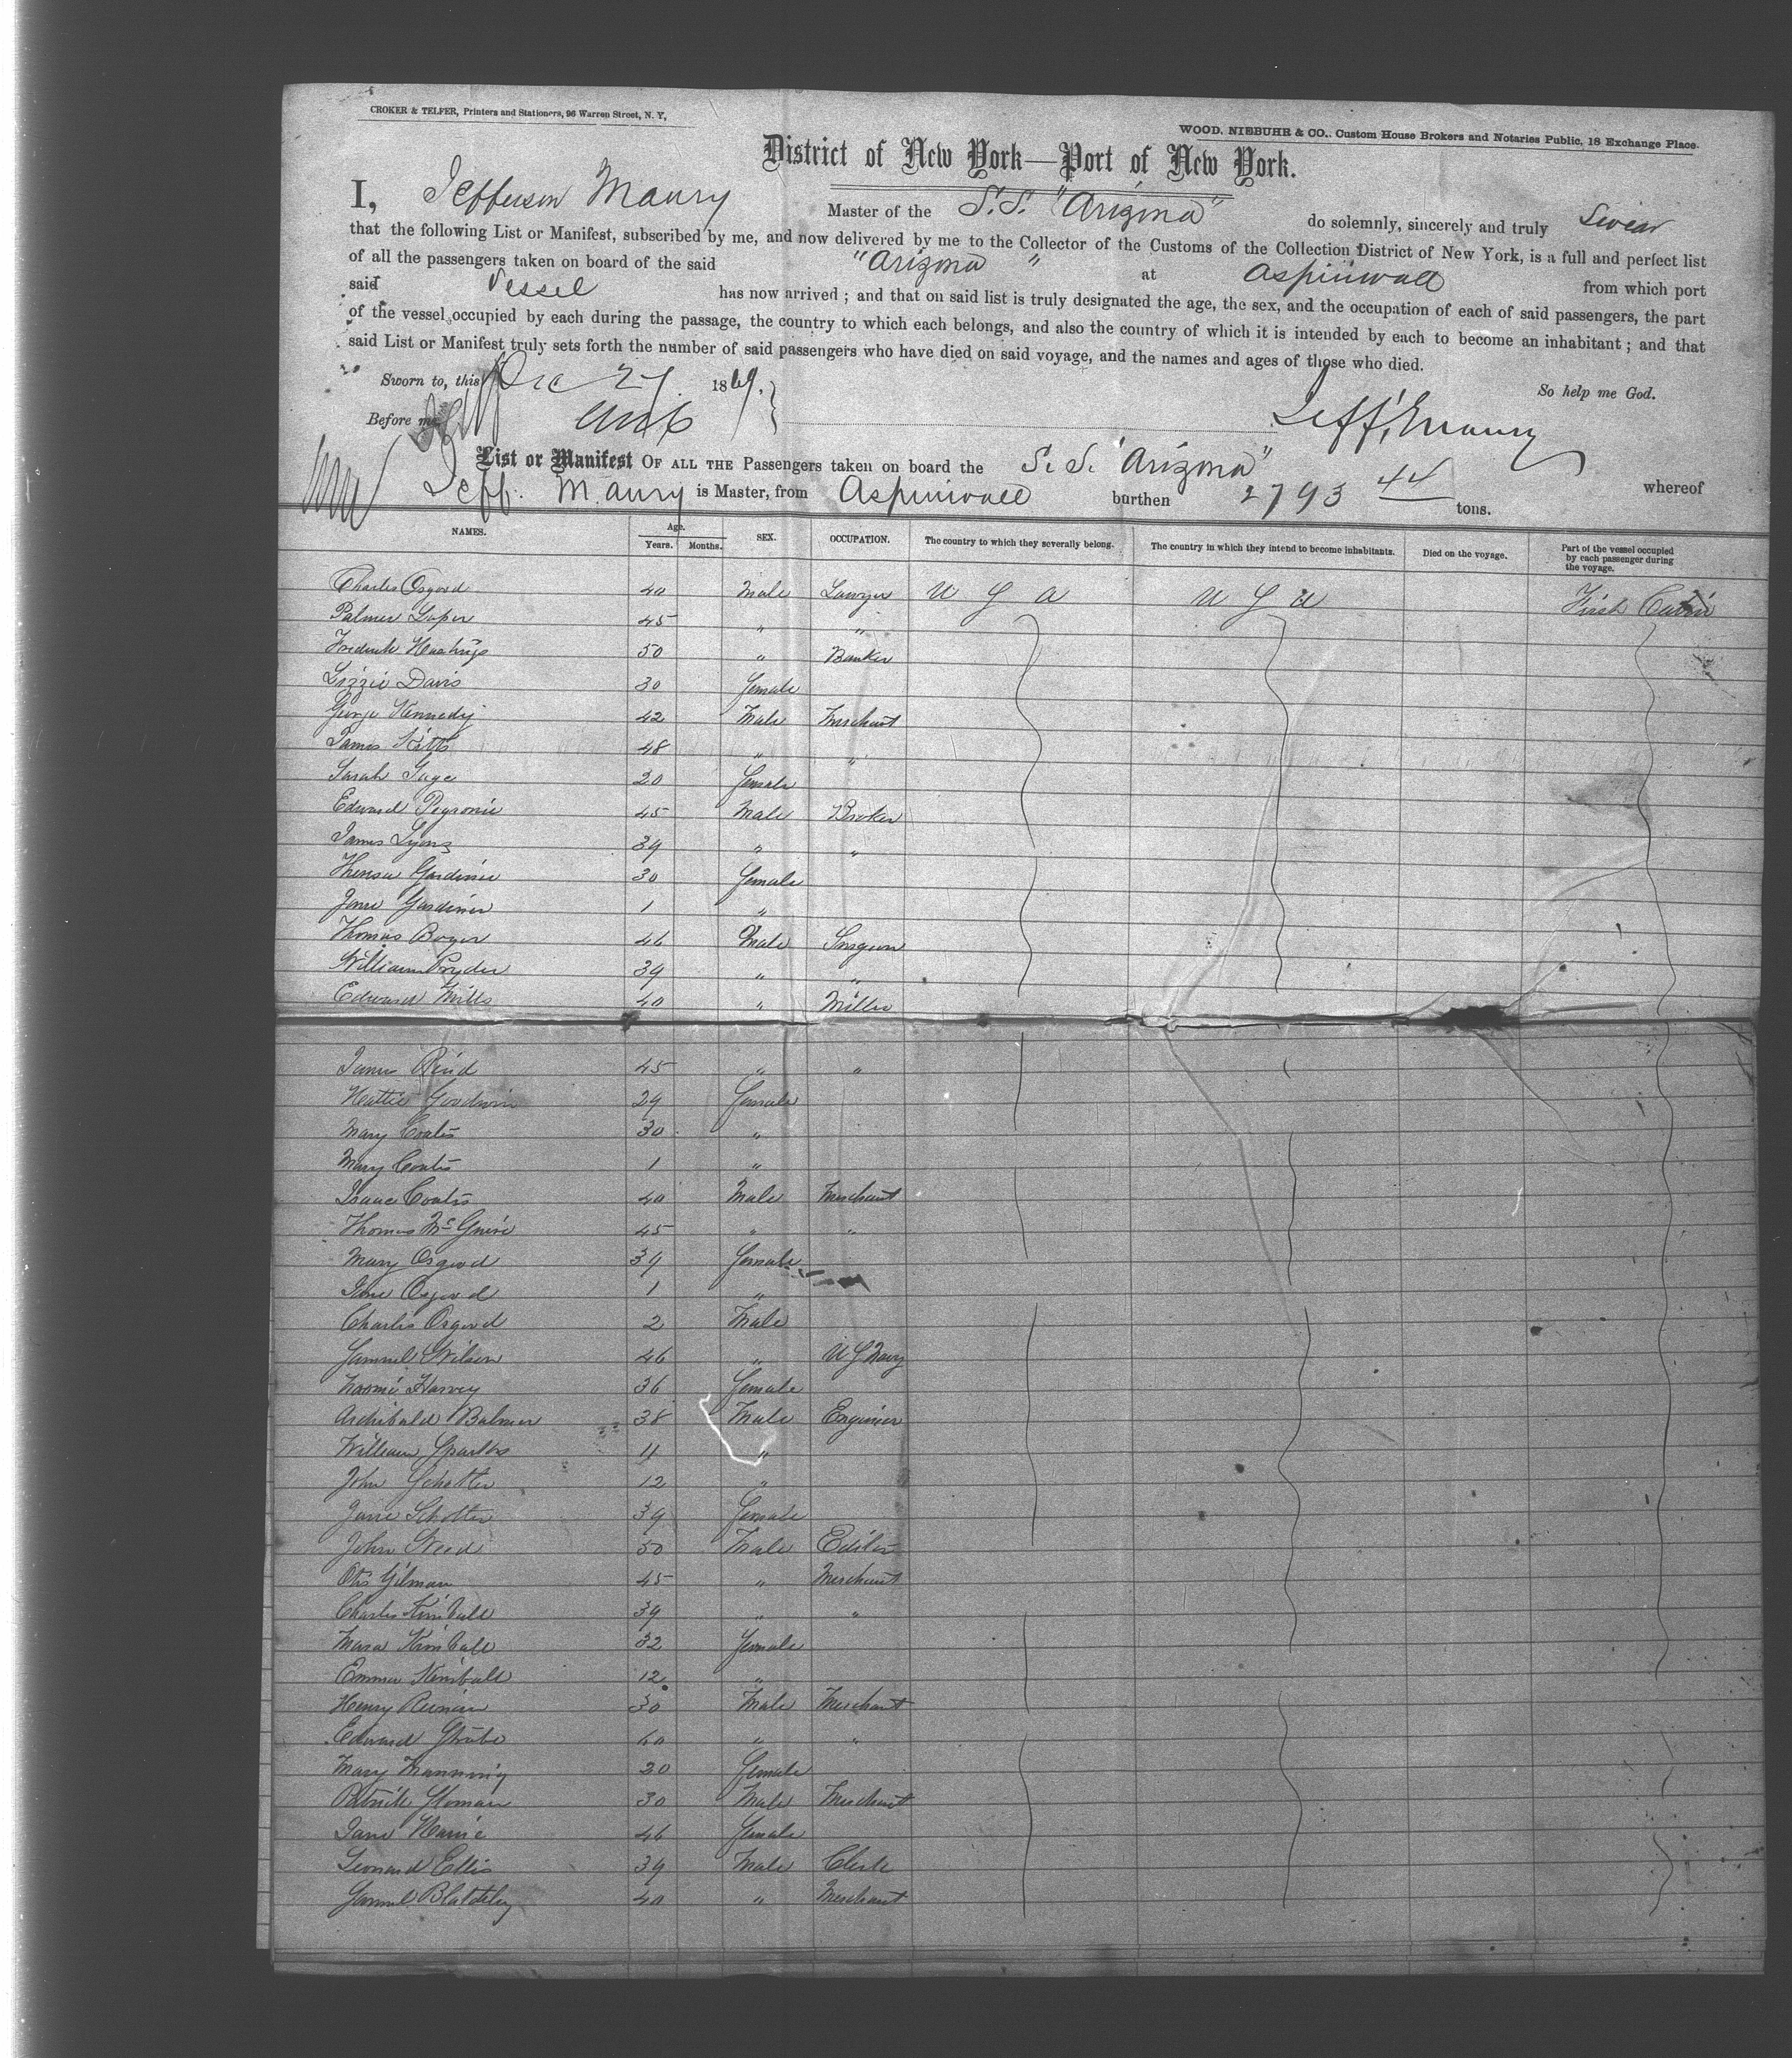 CROKER & TELFER, Printers and Stationers, 96 Warren Street, N. Y,
WOOD, NIEBUHR & CO., Custom House Brokers and Notaries Public, 18 Exchange Place.
District of New York—Port of New York.
I, Jefferson Maury Master of the S.S. "Arizona" do solemnly, sincerely and truly Swear
that the following List or Manifest, subscribed by me, and now delivered by me to the Collector of the Customs of the Collection District of New York, is a full and perfect list
of all the passengers taken on board of the said "Arizona" at Aspinwall from which port
said Vessel has now arrived ; and that on said list is truly designated the age, the sex, and the occupation of each of said passengers, the part
of the vessel occupied by each during the passage, the country to which each belongs, and also the country of which it is intended by each to become an inhabitant ; and that
said List or Manifest truly sets forth the number of said passengers who have died on said voyage, and the names and ages of those who died.
Sworn to, this Dec 27 1869. So help me God.
Before me Jeff. Maury
List or Manifest OF ALL THE Passengers taken on board the S.S. "Arizona" whereof
Jeff. Maury is Master, from Aspinwall burthen 2793 44 tons.
NAMES. Age. Years. Months. SEX. OCCUPATION. The country to which they severally belong. The country in which they intend to become inhabitants. Died on the voyage. Part of the vessel occupied by each passenger during the voyage.
Charles Osgood 40 Male Lawyer U S A U S A First Cabin
Palmer 45 " "
Frederick Hastings 50 " Banker
Lizzie Davis 30 Female
George Kennedy 42 Male Merchant
James 48 " "
Sarah Gage 20 Female
Edward Peyronie 45 Male Broker
James Lyons 39 " "
Theresa Gardiner 30 Female
Jane Gardiner 1 "
Thomas Boyer 46 Male Surgeon
William Pryder 39 " "
Edward Mills 40 " Miller
James Reid 45 " "
Hattie Goodwin 29 Female
Mary Coates 30 "
Mary Coates 1 "
Isaac Coates 40 Male Merchant
Thomas McGuire 45 " "
Mary Osgood 39 Female
Jane Osgood 1 "
Charles Osgood 2 Male
Samuel Wilson 46 " U S Navy
Naomi Harvey 36 Female
Archibald Balmer 38 Male Engineer
William Sparks 11 "
John Schotter 12 "
Jane Schotter 39 Female
John Weed 50 Male Editor
Otis Gilman 45 " Merchant
Charles Kimball 39 " "
Mara Kimball 32 Female
Emma Kimball 12 "
Henry 30 Male Merchant
Edward 40 " "
Mary Manning 20 Female
Patrick 30 Male Merchant
Jane 46 Female
Leonard Ellis 39 Male Clerk
Samuel 40 " Merchant